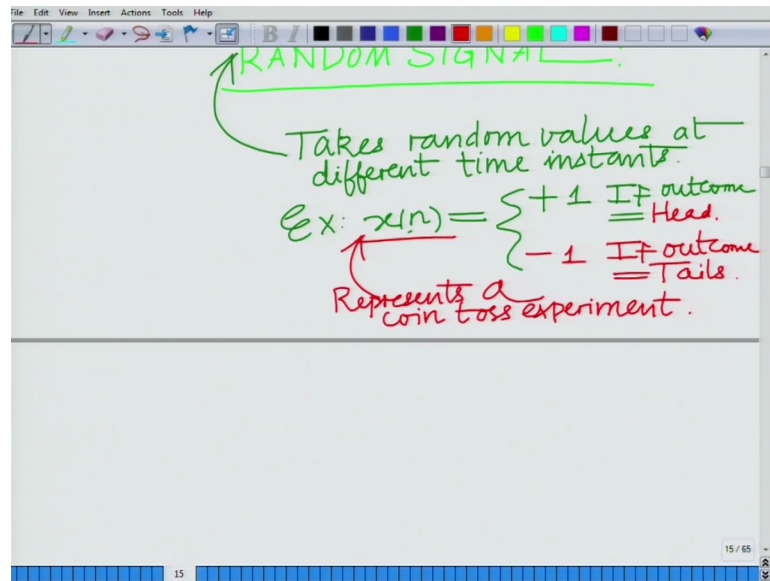 File Edit View Insert Actions Tools Help
B I
RANDOM SIGNAL :
Takes random values at
different time instants.
Ex: x(n) = { +1 If outcome
Head.
-1 If outcome
Tails.
Represents a
coin toss experiment.
15 / 65
15